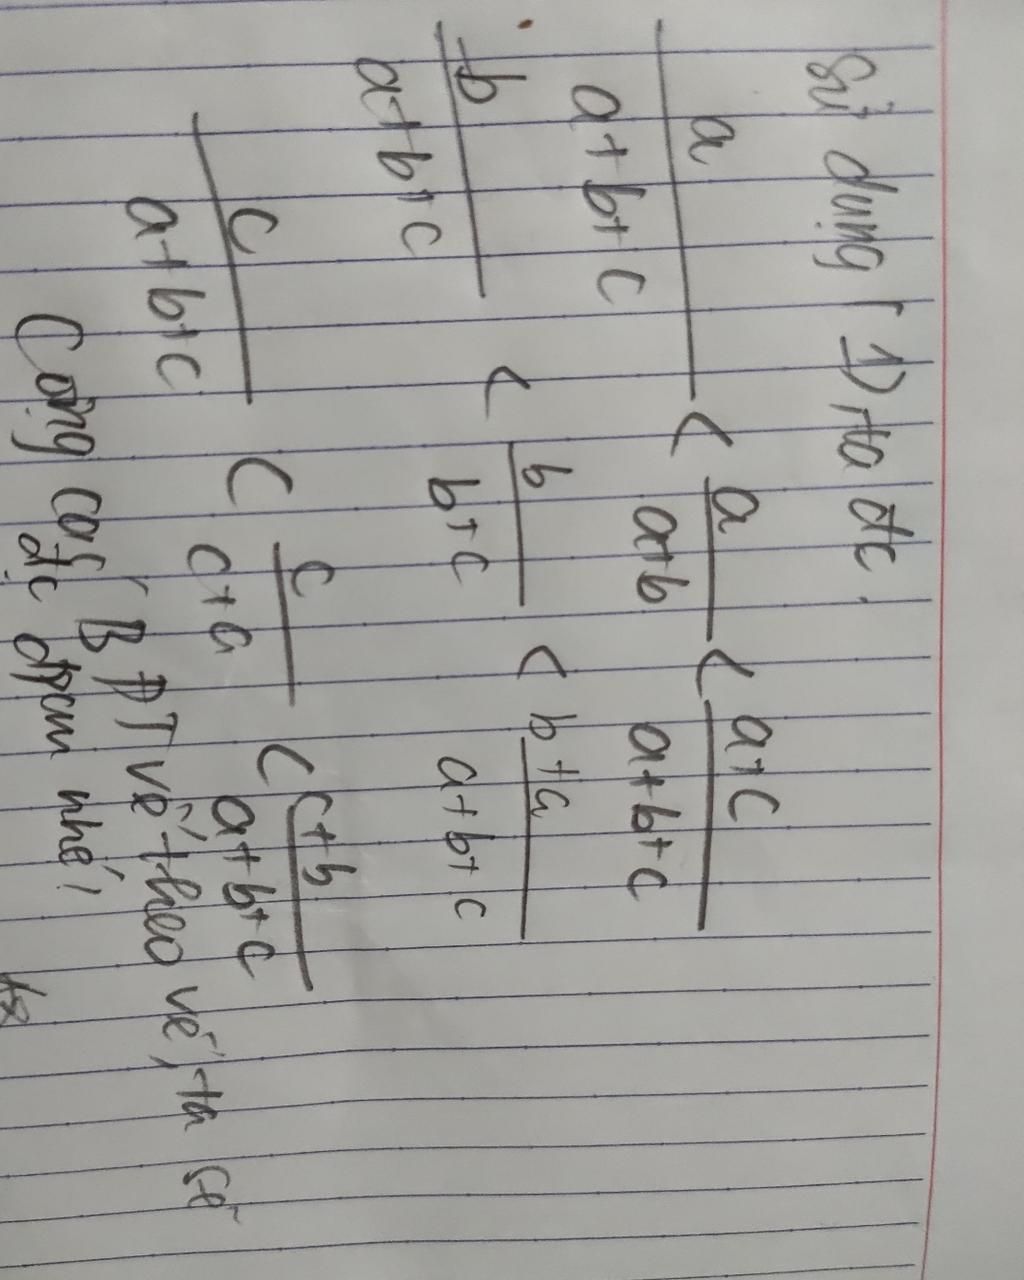 Sử dụng (1) ta đc
a/(a+b+c) < a/(a+b) < (a+c)/(a+b+c)
b/(a+b+c) < b/(b+c) < (b+a)/(a+b+c)
c/(a+b+c) < c/(c+a) < (c+b)/(a+b+c)
Cộng các BĐT vế theo vế, ta sẽ
đc đpcm nhé!